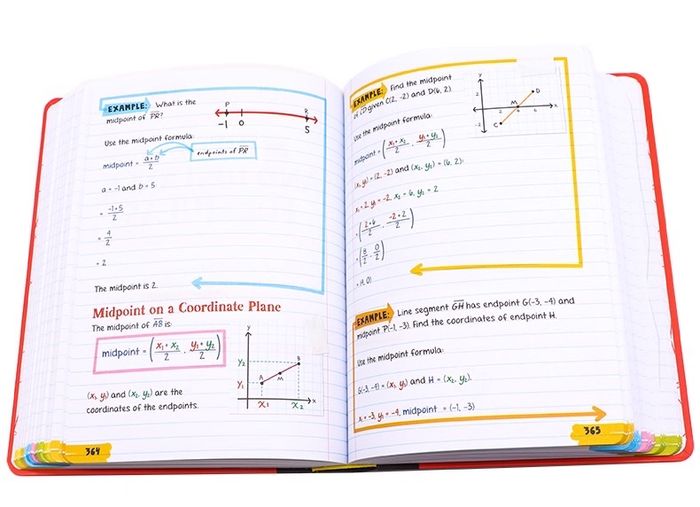 EXAMPLE: What is the
midpoint of PR?
P R
-1 0 5
Use the midpoint formula:
midpoint = a + b / 2
endpoints of PR
a = -1 and b = 5
= -1 + 5 / 2
= 4 / 2
= 2
The midpoint is 2.
Midpoint on a Coordinate Plane
The midpoint of AB is:
midpoint = (x₁ + x₂ / 2 , y₁ + y₂ / 2)
(x₁, y₁) and (x₂, y₂) are the
coordinates of the endpoints.
y
y₂ B
M
y₁ A
x
x₁ x₂
364
EXAMPLE: Find the midpoint
of CD given C(2, -2) and D(6, 2).
y
2 D
M x
2 4 6
-2 C
Use the midpoint formula:
midpoint = (x₁ + x₂ / 2 , y₁ + y₂ / 2)
(x₁, y₁) = (2, -2) and (x₂, y₂) = (6, 2):
x₁ = 2, y₁ = -2, x₂ = 6, y₂ = 2
= (2 + 6 / 2 , -2 + 2 / 2)
= (8 / 2 , 0 / 2)
= (4, 0)
EXAMPLE: Line segment GH has endpoint G(-3, -4) and
midpoint P(-1, -3). Find the coordinates of endpoint H.
Use the midpoint formula:
G(-3, -4) = (x₁, y₁) and H = (x₂, y₂).
x₁ = -3, y₁ = -4, midpoint = (-1, -3)
365